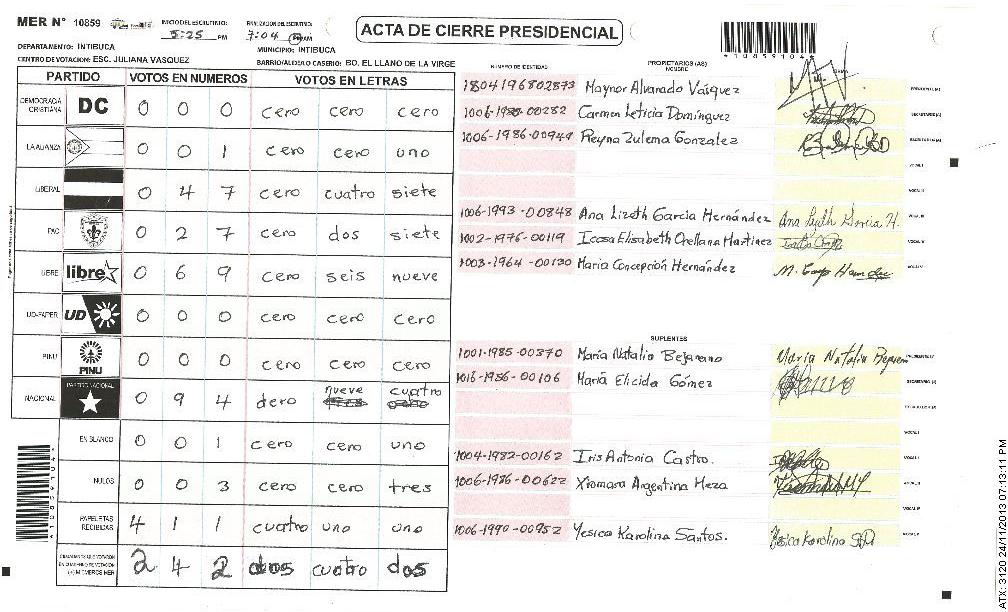 MER N° 10859
INICIO DEL ESCRUTINIO: 5:25 PM
FINALIZACION DEL ESCRUTINIO: 7:04 PM
ACTA DE CIERRE PRESIDENCIAL
*10859104*
DEPARTAMENTO: INTIBUCA
MUNICIPIO: INTIBUCA
CENTRO DE VOTACION: ESC. JULIANA VASQUEZ
BARRIO/ALDEA O CASERIO: BO. EL LLANO DE LA VIRGE
PARTIDO VOTOS EN NUMEROS VOTOS EN LETRAS
DEMOCRACIA CRISTIANA DC 0 0 0 cero cero cero
LA ALIANZA 0 0 1 cero cero uno
LIBERAL 0 4 7 cero cuatro siete
PAC 0 2 7 cero dos siete
LIBRE libre 0 6 9 cero seis nueve
UD-FAPER UD 0 0 0 cero cero cero
PINU PINU 0 0 0 cero cero cero
NACIONAL PARTIDO NACIONAL 0 9 4 dero nueve cuatro
EN BLANCO 0 0 1 cero cero uno
NULOS 0 0 3 cero cero tres
PAPELETAS RECIBIDAS 4 1 1 cuatro uno uno
CIUDADANOS QUE VOTARON EN CUADERNO DE VOTACION (+) MIEMBROS MER 2 4 2 dos cuatro dos
NUMERO DE IDENTIDAD
PROPIETARIOS (AS)
NOMBRE
FIRMA
1804196802873 Maynor Alvarado Vásquez
1006-1980-00282 Carmen Leticia Domínguez
1006-1986-00949 Reyna Zulema Gonzalez
1006-1993-00848 Ana Lizeth Garcia Hernández
1002-1976-00119 Icosa Elisabeth Orellana Martinez
1003-1964-00130 Maria Concepción Hernández
SUPLENTES
1001-1985-00370 María Natalia Bejarano
1016-1986-00106 María Elicida Gómez
1004-1982-00162 Iris Antonia Castro.
1006-1986-00622 Xiomara Argentina Meza
1006-1990-00952 Yesica Karolina Santos.
*10859104*
ATX: 3120 24/11/2013 07:13:11 PM